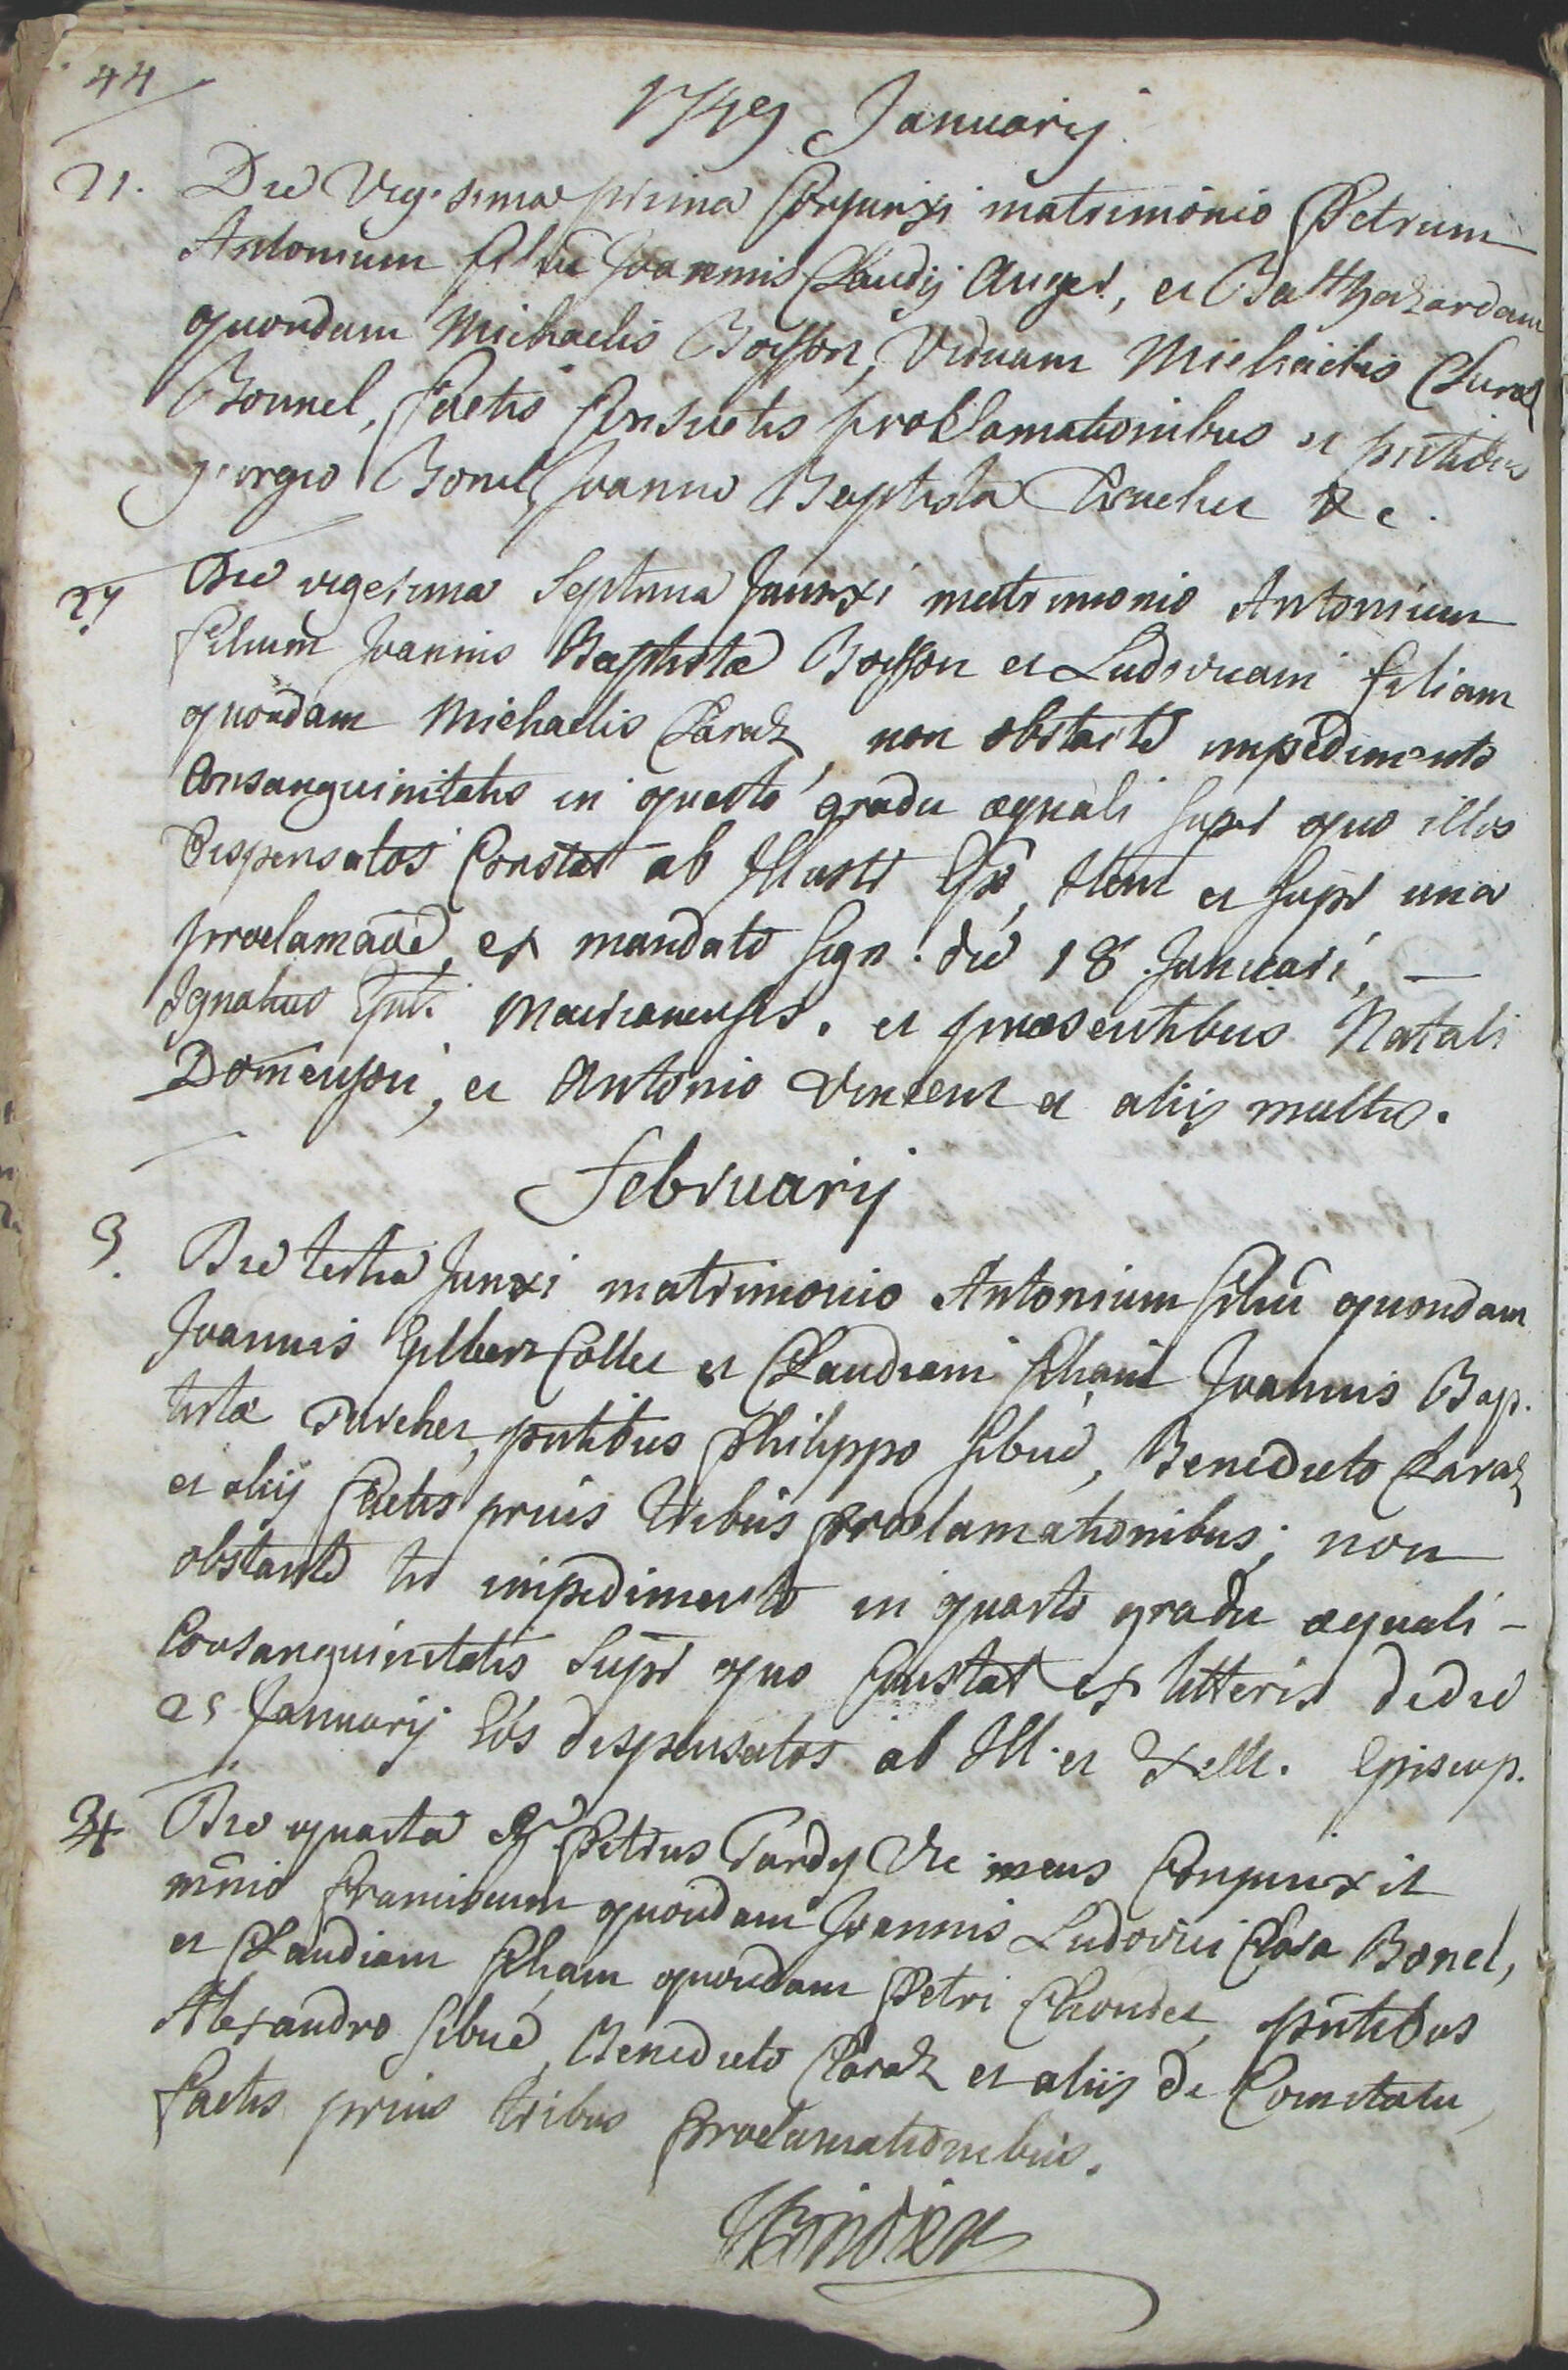 44
1749 Januarij
21. Die Vigesima prima Conjunxi matrimonio Petrum
Antonium filiū Joannis Claudij Auger, et Balthazardam
quondam Michaelis Bosson, Viduam Michaelis Claraz
Bonnel, factis Consuetis proclamationibus et pntibus
georgio Bonel, Joanne Baptista &c.
27 Die vigesima Septima Junxi matrimonio Antonium
filium Joannis Baptistæ Bosson et Ludovicam filiam
quondam Michaelis Claraz, non obstante impedimento
Consanguinitatis in quarto gradu æquali super quo illos
dispensatos Constat ab Illustr Epō, Item et super una
proclamaōe, ex mandato sign. die 18 Januari, –
Ignatius Epūs Maurianensis. et præsentibus Natali
Domenjon, et Antonio Vincent et aliis multis.
Februarij
3. Die tertia Junxi matrimonio Antonium filiū quondam
Joannis Gilbert Collet et Claudiam filiam Joannis Bap.
tistæ Turchet, pntibus Philippo Sibué, Benedicto Claraz
et alijs factis prius tribus proclamationibus; non
obstante tn impedimento in quarto gradu æquali –
Consanguinitatis super quo Constat ex litteris de die
25 Januarij eos dispensatos ab Ill. et Excell. Episcop.
4 Die quarta Rd Petrus Tardy Vic meus Conjunxit
mnio Franciscum quondam Joannis Ludovici Clara Bonel,
et Claudiam filiam quondam Petri Chondet, pntibus
Alexandro Sibué, Benedicto Claraz et aliis de Comitatu,
factis prius tribus proclamationibus.